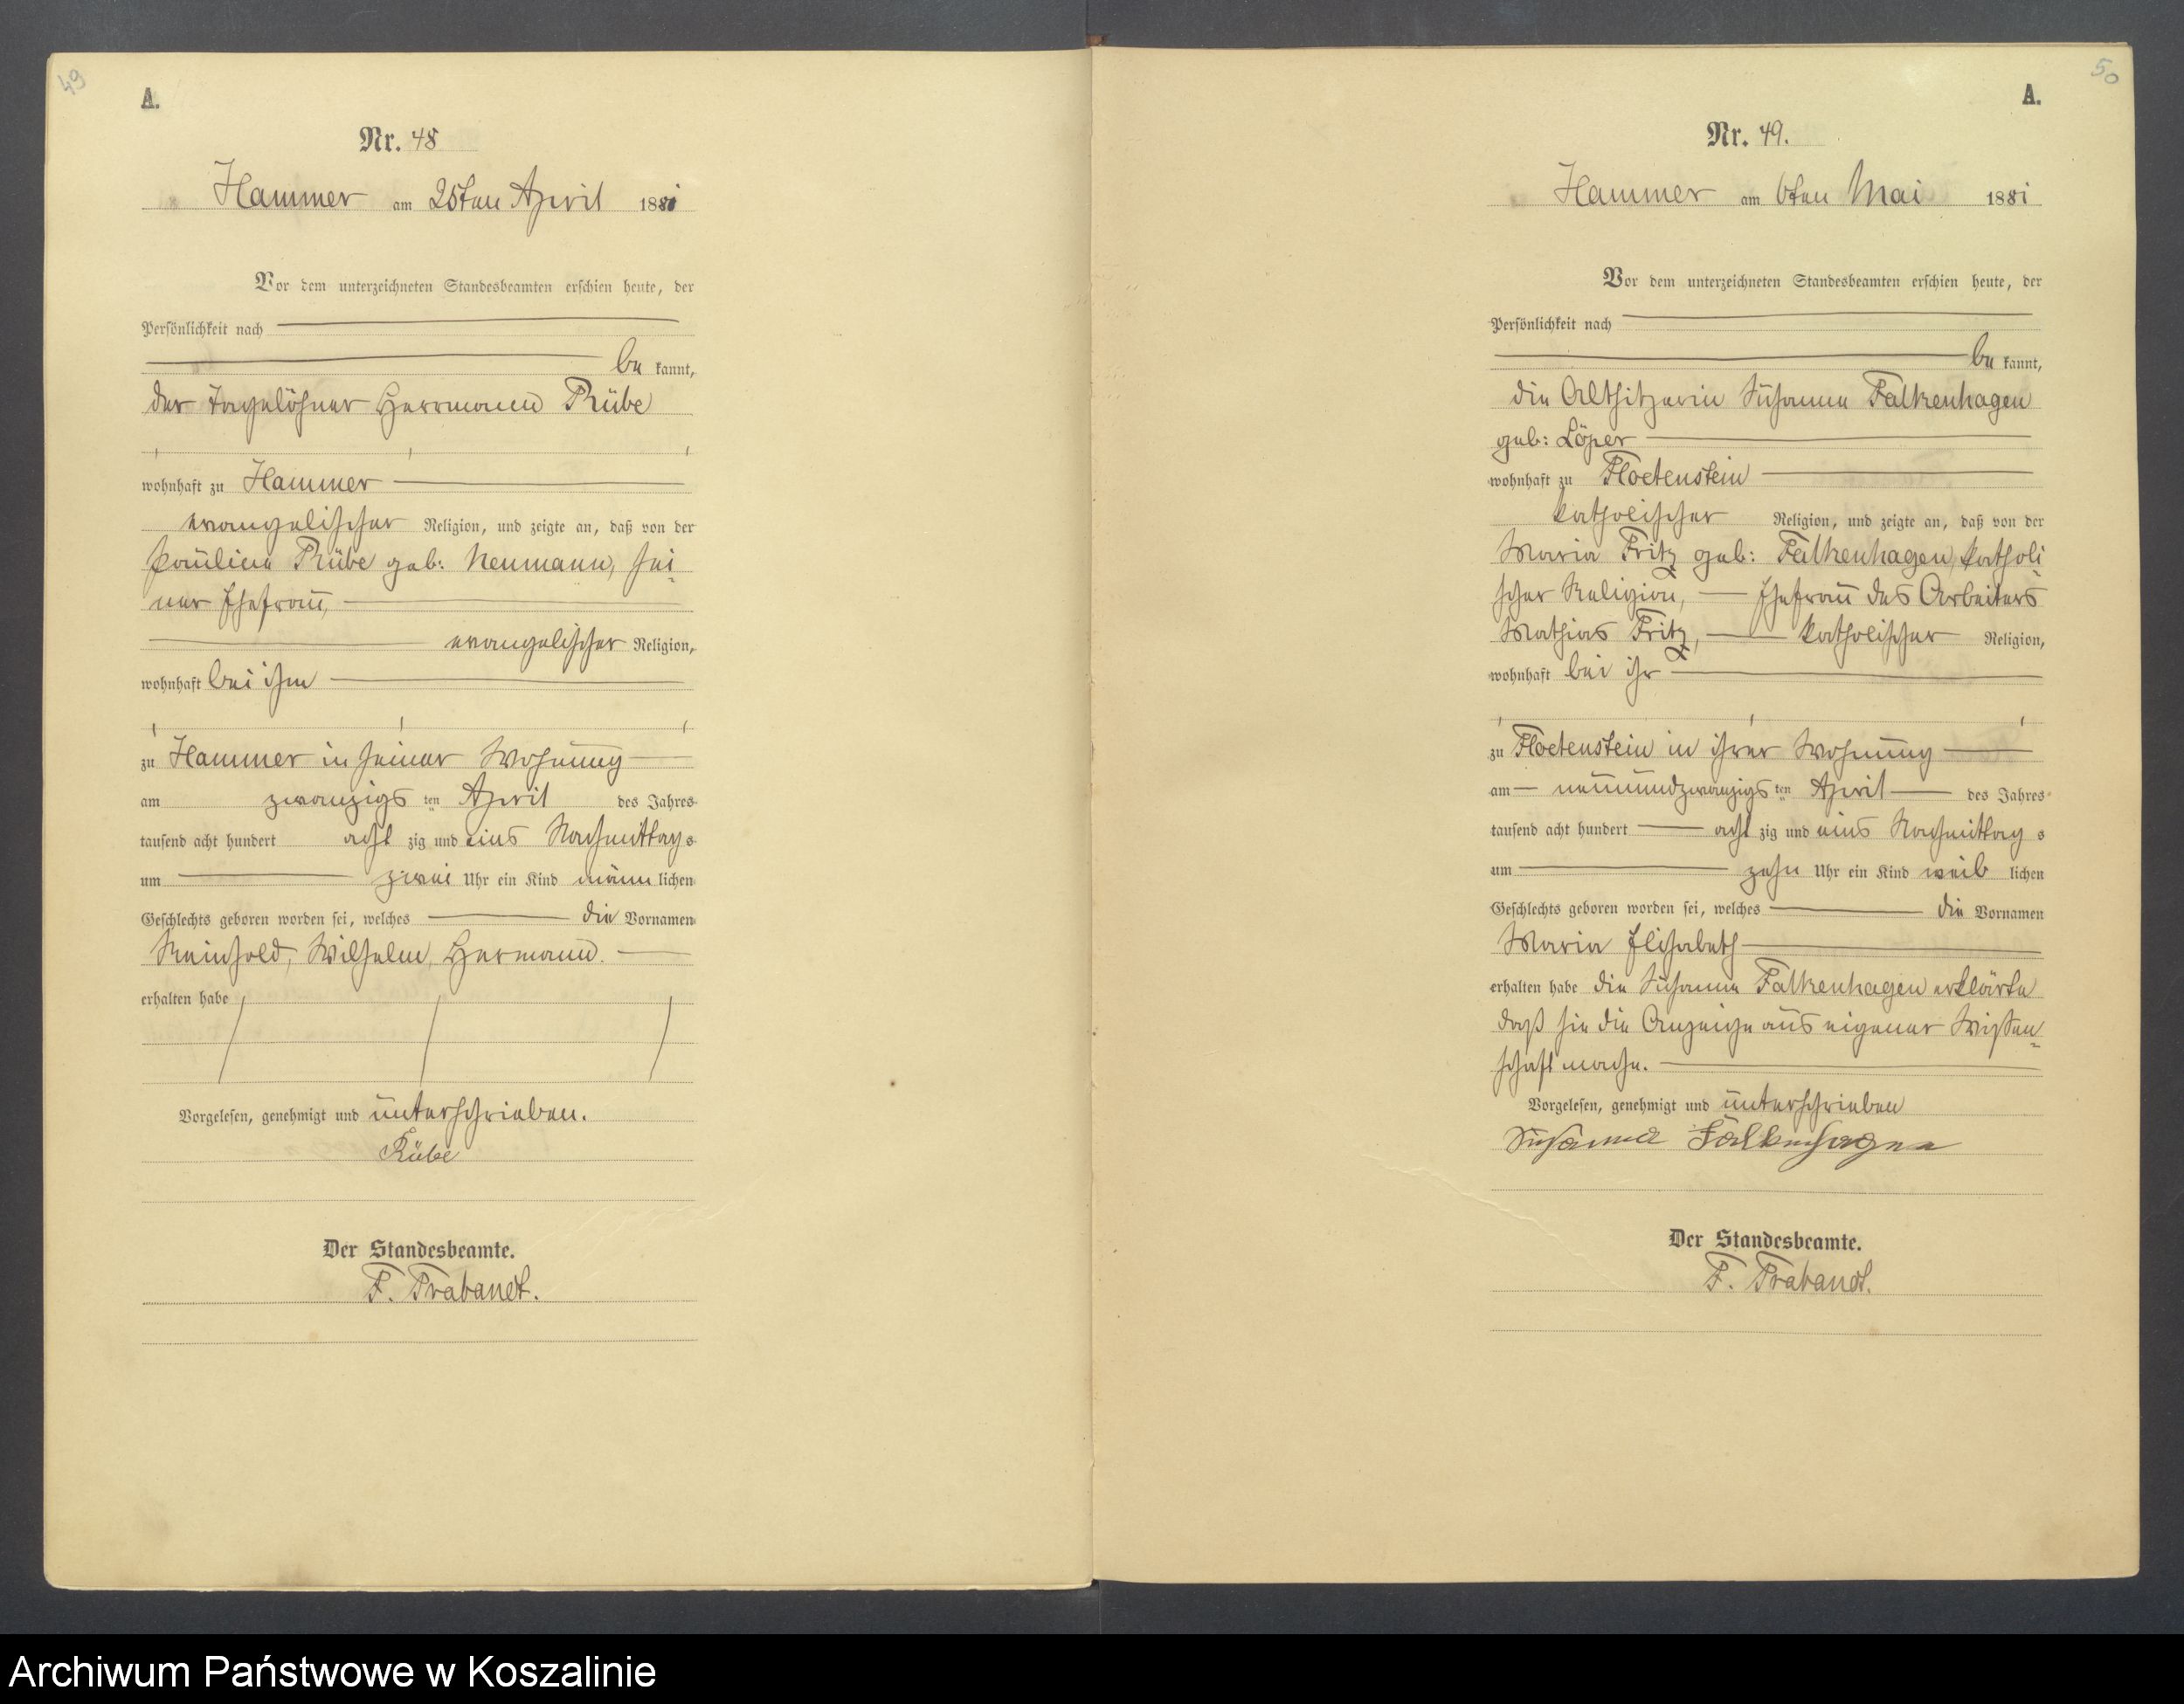 49
A.
Nr. 48
Hammer am 25ten April 1881
Vor dem unterzeichneten Standesbeamten erschien heute, der
Persönlichkeit nach
be kannt,
der Tagelöhner Herrmann Rübe
wohnhaft zu Hammer
evangelischer Religion, und zeigte an, daß von der
Pauline Rübe geb: Neumann, sei-
ner Ehefrau,
evangelischer Religion,
wohnhaft bei ihm
zu Hammer in seiner Wohnung
am zwanzigs ten April des Jahres
tausend acht hundert acht zig und eins Nachmittag s
um zwei Uhr ein Kind männ lichen
Geschlechts geboren worden sei, welches die Vornamen
Reinhold, Wilhelm, Hermann.
erhalten habe
Vorgelesen, genehmigt und unterschrieben.
Rübe
Der Standesbeamte.
F. Trabandt.
50
A.
Nr. 49.
Hammer am 6ten Mai 1881
Vor dem unterzeichneten Standesbeamten erschien heute, der
Persönlichkeit nach
be kannt,
die Altsitzerin Susanna Falkenhagen
geb: Löper
wohnhaft zu Floetenstein
katholischer Religion, und zeigte an, daß von der
Maria Fritz geb: Falkenhagen, katholi-
scher Religion, Ehefrau des Arbeiters
Mathias Fritz, katholischer Religion,
wohnhaft bei ihr
zu Floetenstein in ihrer Wohnung
am neunundzwanzigs ten April des Jahres
tausend acht hundert acht zig und eins Nachmittag s
um zehn Uhr ein Kind weib lichen
Geschlechts geboren worden sei, welches die Vornamen
Maria Elisabeth
erhalten habe die Susanna Falkenhagen erklärte
daß sie die Anzeige aus eigener Wissen-
schaft mache.
Vorgelesen, genehmigt und unterschrieben
Susanna Falkenhagen
Der Standesbeamte.
F. Trabandt.
Archiwum Państwowe w Koszalinie